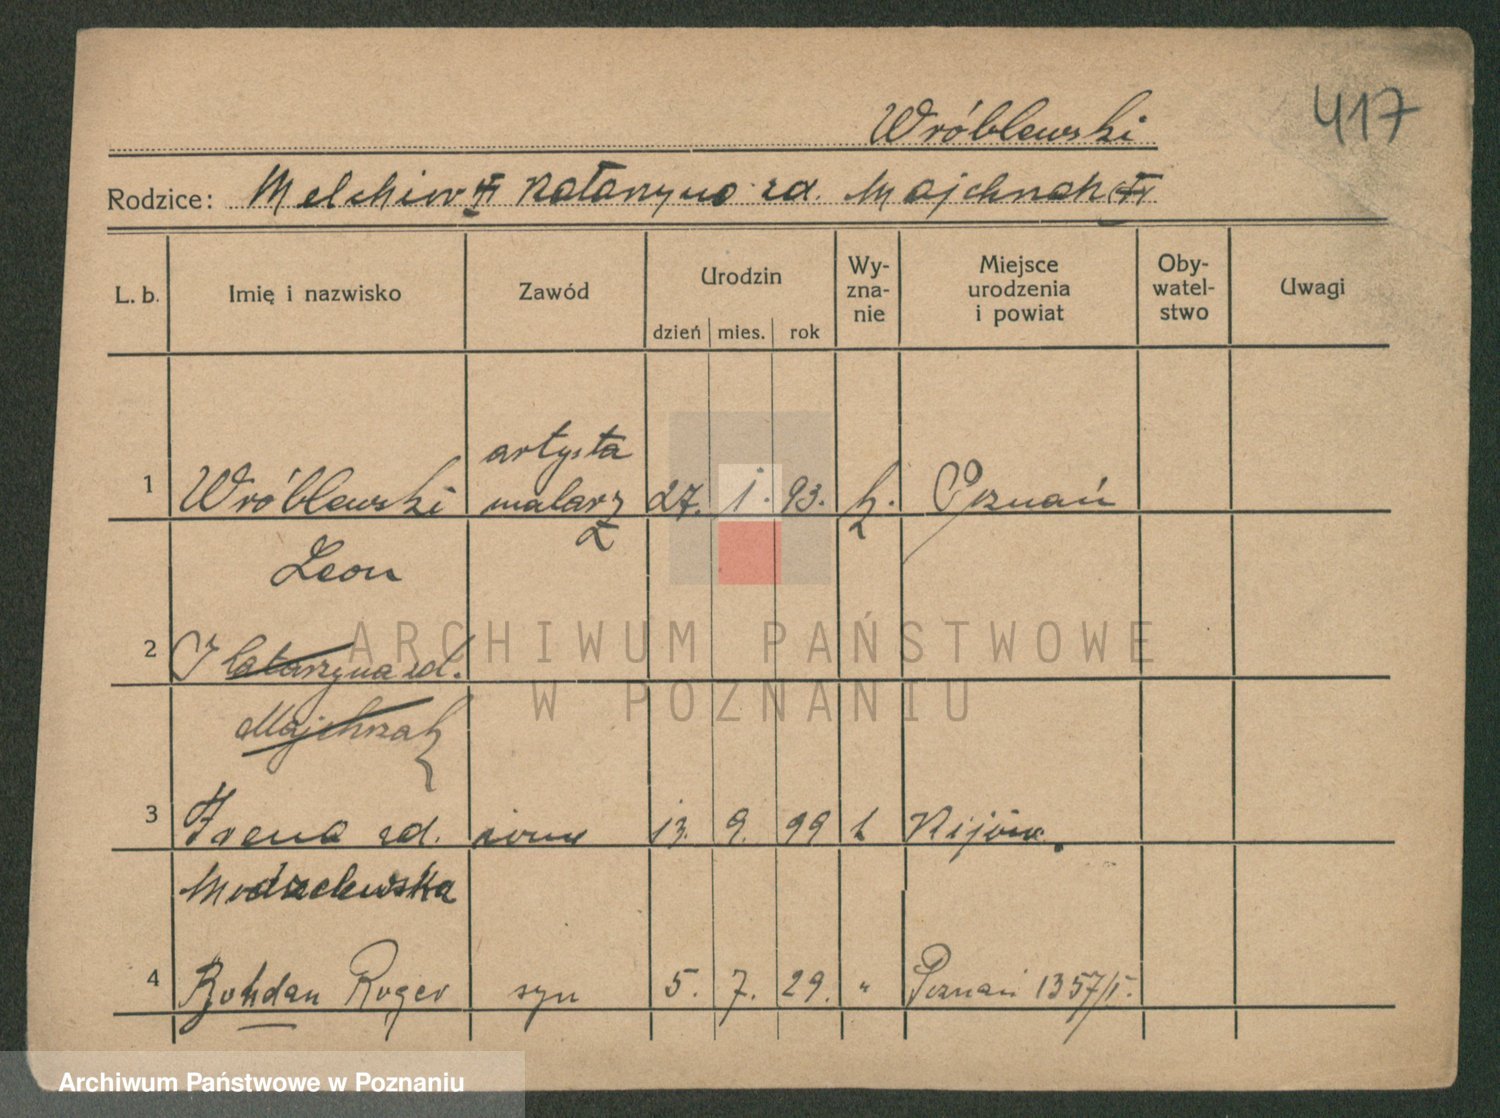 417
Wróblewski
Rodzice: Melchior Katarzyna zd. Majchrzak
L. b. Imię i nazwisko Zawód Urodzin dzień mies. rok Wy-zna-nie Miejsce urodzenia i powiat Oby-watel-stwo Uwagi
artysta
1 Wróblewski malarz 27. 1. 93. k. Poznań
Leon
2 Katarzyna zd.
Majchrzak
3 Irena zd. żona 13. 9. 99 k Kijów.
Modzelewska
4 Bohdan Roger syn 5. 7. 29. " Poznań 1357/I.
ARCHIWUM PAŃSTWOWE
W POZNANIU
Archiwum Państwowe w Poznaniu